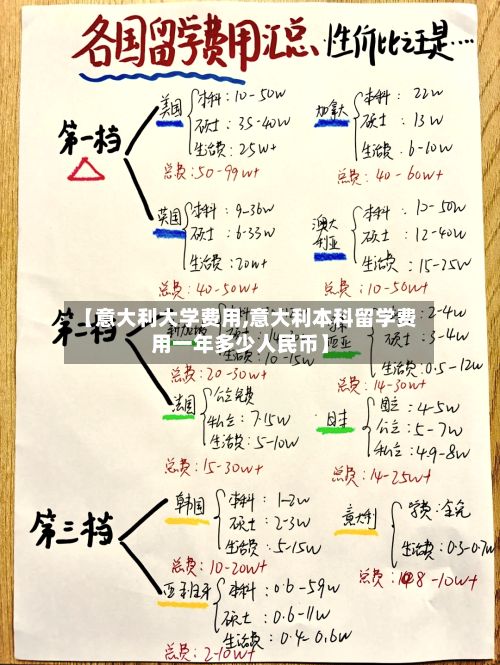 各国留学费用汇总、性价比之王是....
第一档
美国
本科:10-50w
硕士:35-40w
生活费:25w+
总费:50-99w+
加拿大
本科:22w
硕士:13w
生活费:6-10w
总费:40-60w+
英国
本科:9-36w
硕士:6-33w
生活费:20w+
总费:40-50w+
澳大利亚
本科:12-50w
硕士:12-40w
生活费:15-25w
总费:10-50w+
【意大利大学费用,意大利本科留学费用一年多少人民币】
第二档
总费:20-30w+
2-4w
硕士:3-4w
生活费:0.5-12w
总费:14-30w+
法国
公立免费
私立:7-15w
生活费:5-10w
总费:15-30w+
日本
国立:4-5w
公立:5-7w
私立:4.9-8w
总费:14-25w+
第三档
韩国
本科:1-2w
硕士:2-3w
生活费:5-15w
总费:10-20w+
意大利
学费:全免
生活费:0.5-0.7w
总费:8-10w+
西班牙
本科:0.6-59w
硕士:0.6-11w
生活费:0.4-0.6w
总费:2-10w+